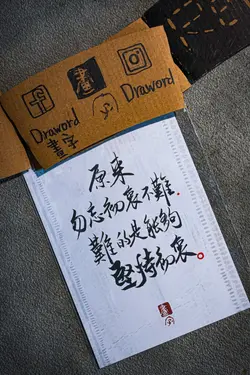 f
Draword
Draword
原来
勿忘初衷不難.
難的是能夠
堅持初衷。